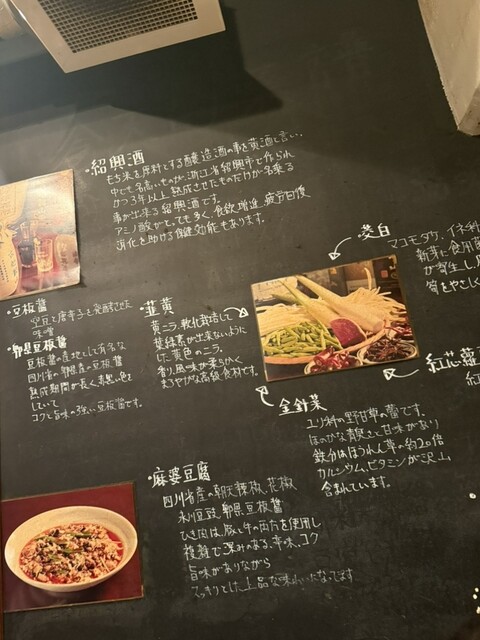 ・紹興酒
もち米を原料とする醸造酒の事を黄酒と言い、
中でも名高いものが、浙江省紹興市で作られ
かつ3年以上熟成させたものだけが名乗る
事が出来る紹興酒です。
アミノ酸がとっても多く、食欲増進、疲労回復
消化を助ける保健効能もあります。
・豆板醤
空豆と唐辛子を発酵させた
味噌
・郫県豆板醤
豆板醤の産地として有名な
四川省の郫県産の豆板醤
熟成期間が長く、黒い色を
していて
コクと旨味の強い豆板醤です。
・韮黄
黄ニラ、軟化栽培して
葉緑素が出来ないように
した黄色のニラ。
香り、風味が柔らかく
まろやかな高級食材です。
・茭白
マコモダケ、イネ科
新芽に食用
が寄生し、
筍をやさしく
・紅芯蘿
紅
・金針菜
ユリ科の野甘草の蕾です。
ほのかな青臭さと甘味があり
鉄分はほうれん草の約20倍
カルシウム、ビタミンが沢山
含まれています。
・麻婆豆腐
四川省産の朝天辣椒、花椒
永川豆豉、郫県豆板醤
ひき肉は、豚と牛の肉を使用し
複雑で深みのある、辛味、コク
旨味がありながら
スッキリとした上品な味わいになってます